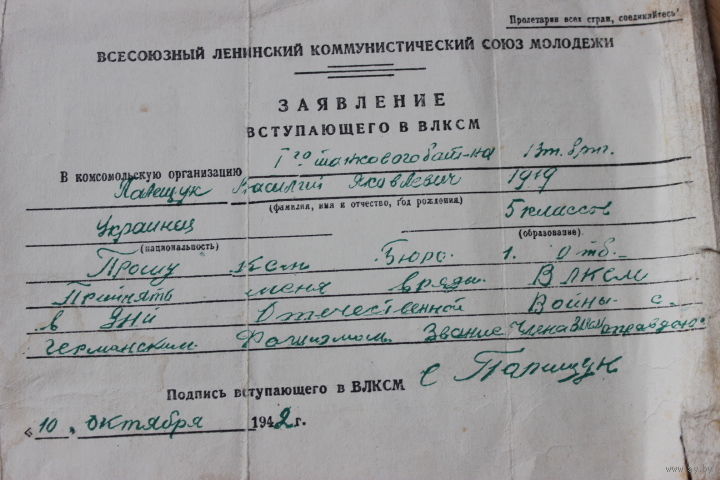 Пролетарии всех стран, соединяйтесь!
ВСЕСОЮЗНЫЙ ЛЕНИНСКИЙ КОММУНИСТИЧЕСКИЙ СОЮЗ МОЛОДЕЖИ
ЗАЯВЛЕНИЕ
ВСТУПАЮЩЕГО В ВЛКСМ
В КОМСОМОЛЬСКУЮ ОРГАНИЗАЦИЮ 1го танкового бат-на 1 т. бриг.
Василий Яковлевич 1919
(фамилия, имя и отчество, год рождения)
Украинец 5 классов
(национальность) (образование)
Прошу Ксм Бюро 1. отб.
Принять меня вряды ВЛКСМ
в дни Отечественной Войны с
германским Фашизмом. Звание Члена ВЛКСМ оправдаю
Подпись вступающего в ВЛКСМ
« 10 » октября 1942 г.
www.ay.by